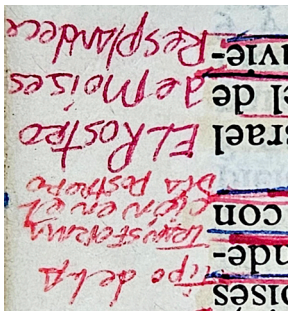 oisés
nde-
con
srael
el de
avie-
tipo de la
transforma
cion en el
Dia postrero
EL Rostro
de Moises
Resplandece